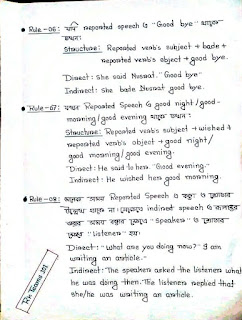 • Rule-06: যদি reported speech এ "Good bye" থাকে
তখন:
Structure: Reported verb's subject + bade +
reported verb's object + good bye.
Direct: She said Nusrat. "Good bye"
Indirect: She bade Nusrat good bye.
• Rule-07: যখন Reported Speech এ good night/good-
morning/good evening থাকে তখন:
Structure: Reported verb's subject + wished +
reported verb's object + good night/
good morning/good evening.
Direct: He said to her. "Good evening."
Indirect: He wished her good morning.
• Rule-08: Reported Speech এ বক্তা ও শ্রোতার
উল্লেখ থাকে না। সেক্ষেত্রে indirect speech এ
"speaker" ও শ্রোতার
"listener" হয়।
Direct: "what are you doing now?" I am
waiting an article."
Indirect: The speaker asked the listener what
he was doing then. The listener replied that
she/he was waiting an article.